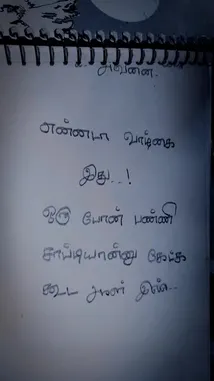 அவனை.
என்னடா வாழ்கை
இது..!
ஒரு போன் பண்ணி
சாப்டியான்னு கேட்க
கூட ஆள் இல்ல..